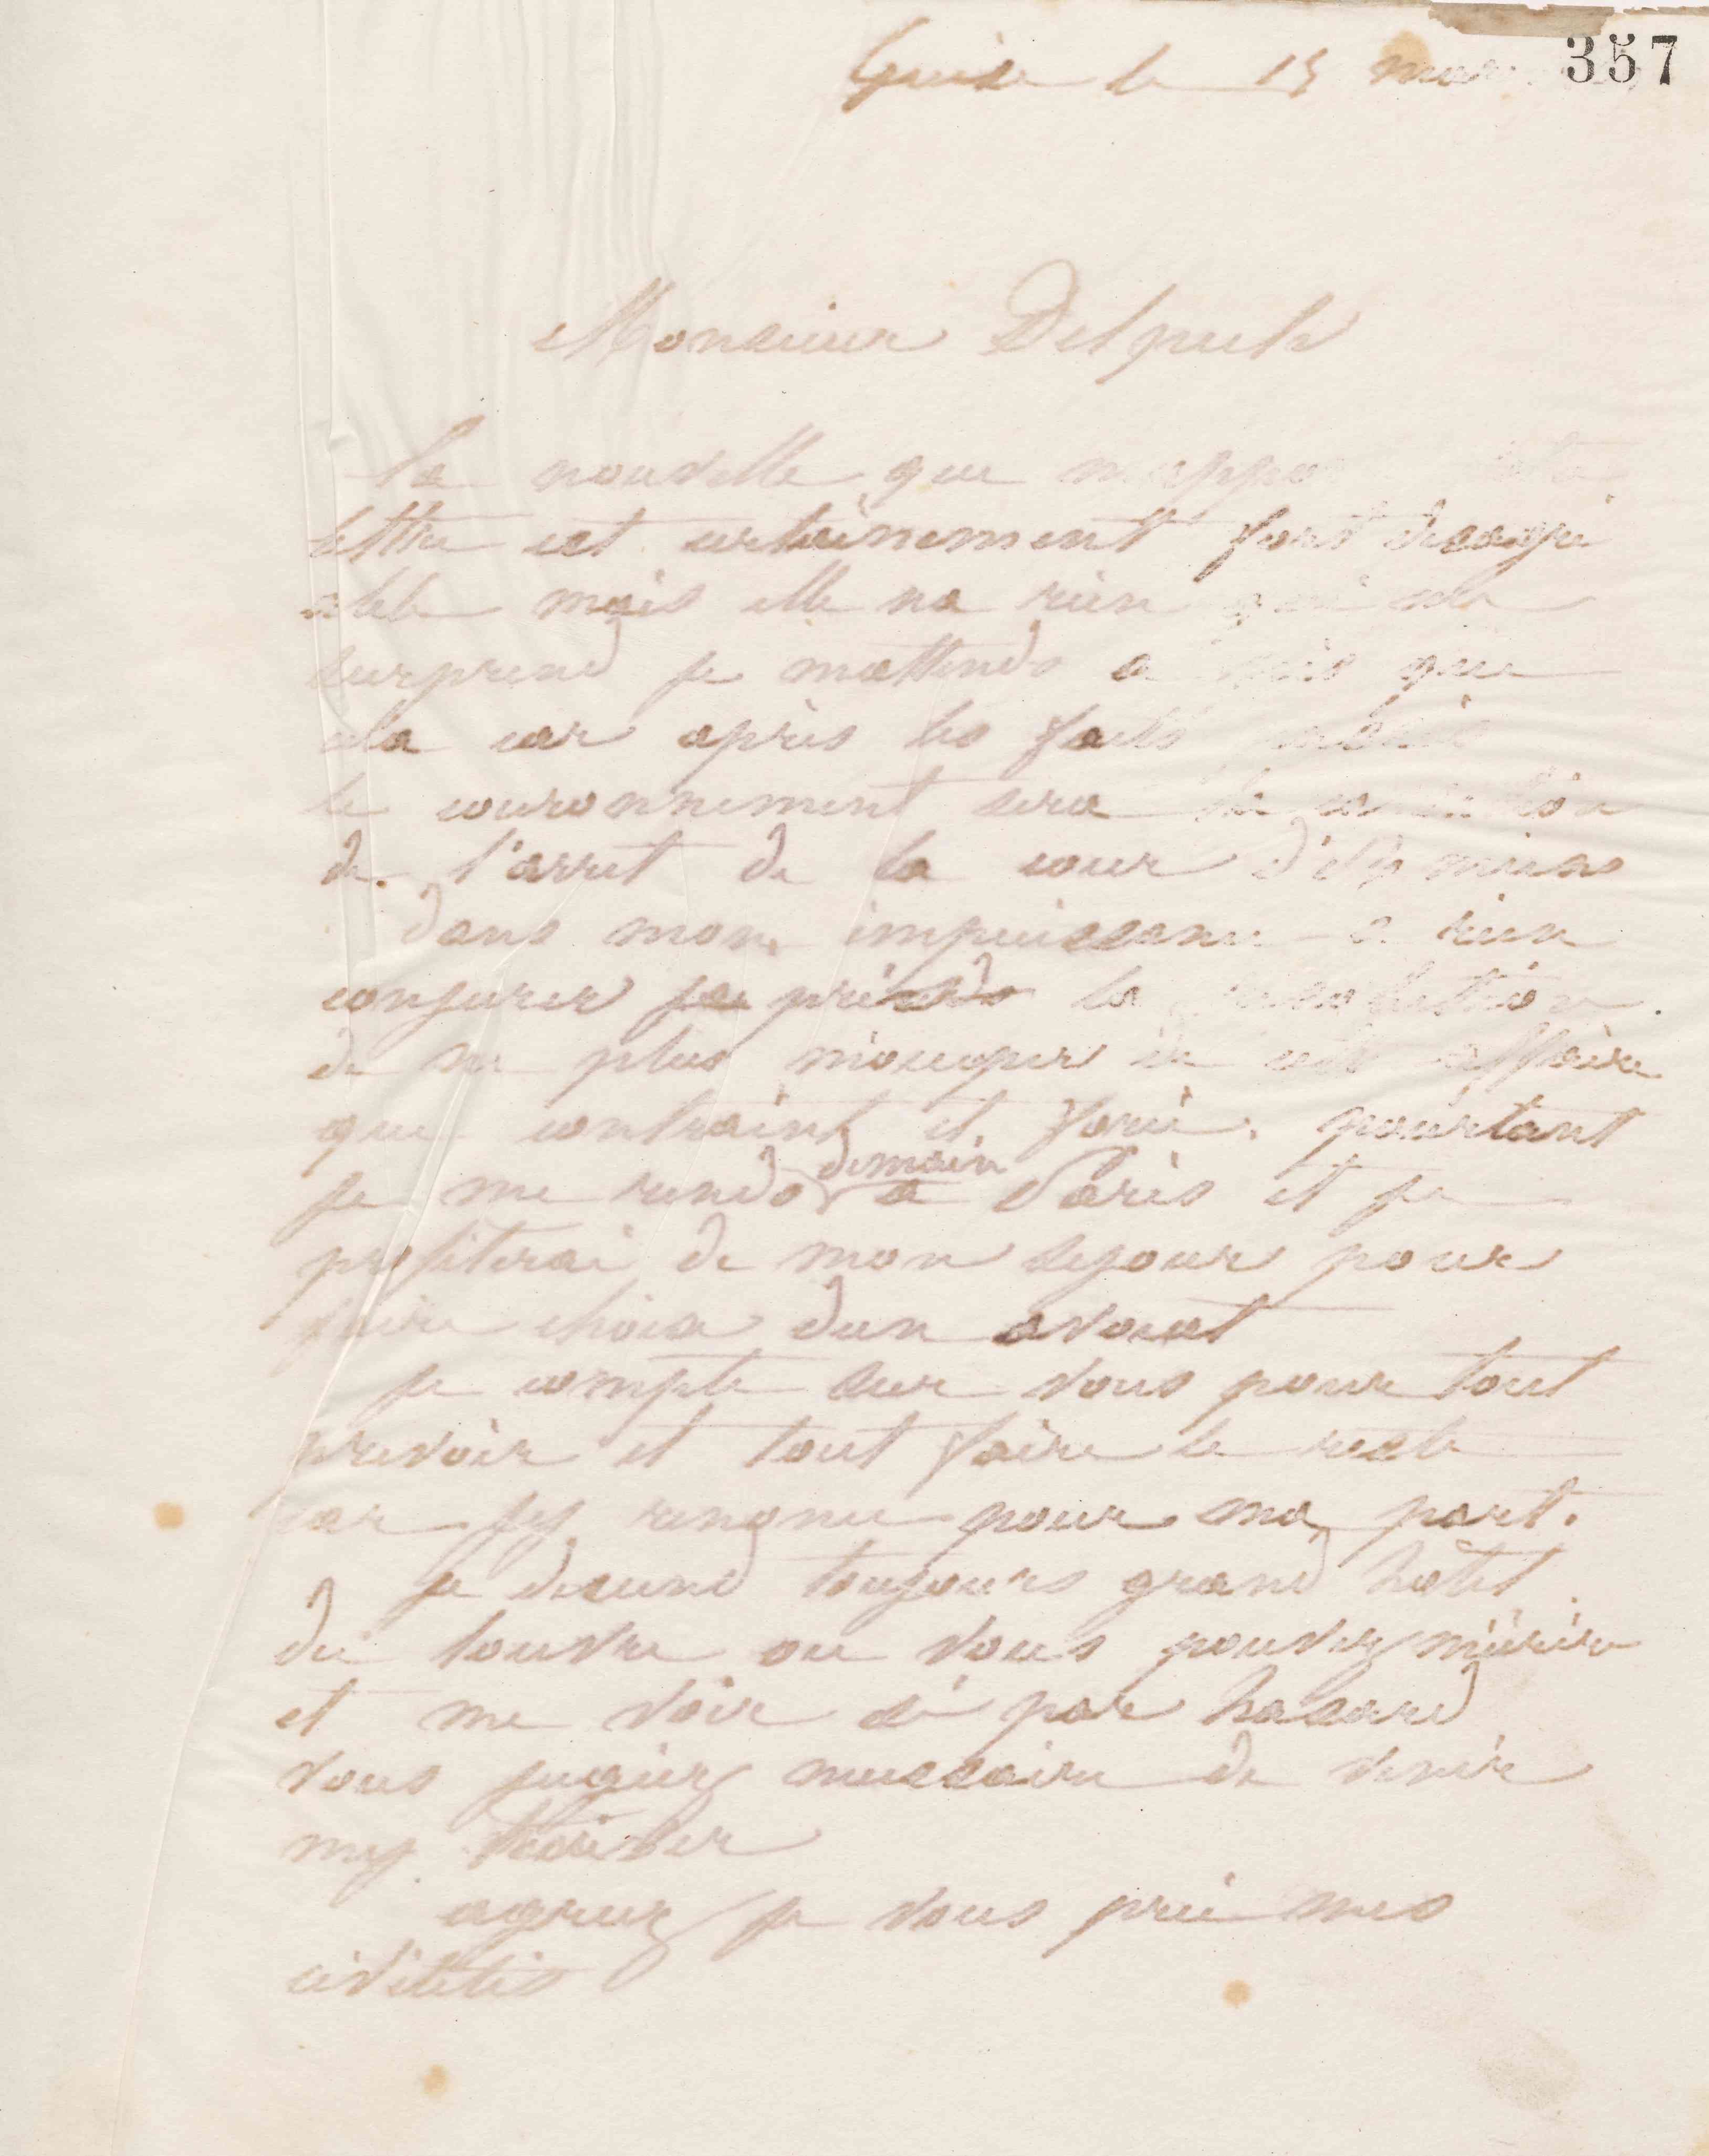 Guise le 15 mars 357
Monsieur Delpech
la nouvelle que
lettre est certainement fort desagré
able mais elle na rien qui me
surprend je mattends a que
cela car après les faits
le couronnement sera la
de l'arret de la cour d'Amiens
dans mon impuissance a rien
conjurer je prends la resolution
de ne plus moccuper de cette affaire
que contraint et forcé. pourtant
je me rends demain a Paris et je
profiterai de mon sejour pour
faire choix dun avocat
je compte sur vous pour tout
prevoir et tout faire le reste
car jy renonce pour ma part.
je descend toujours grand hotel
du louvre ou vous pouvez mécrire
et me voir si par hasard
vous jugiez necessaire de venir
my trouver
agreez je vous prie mes
civilités